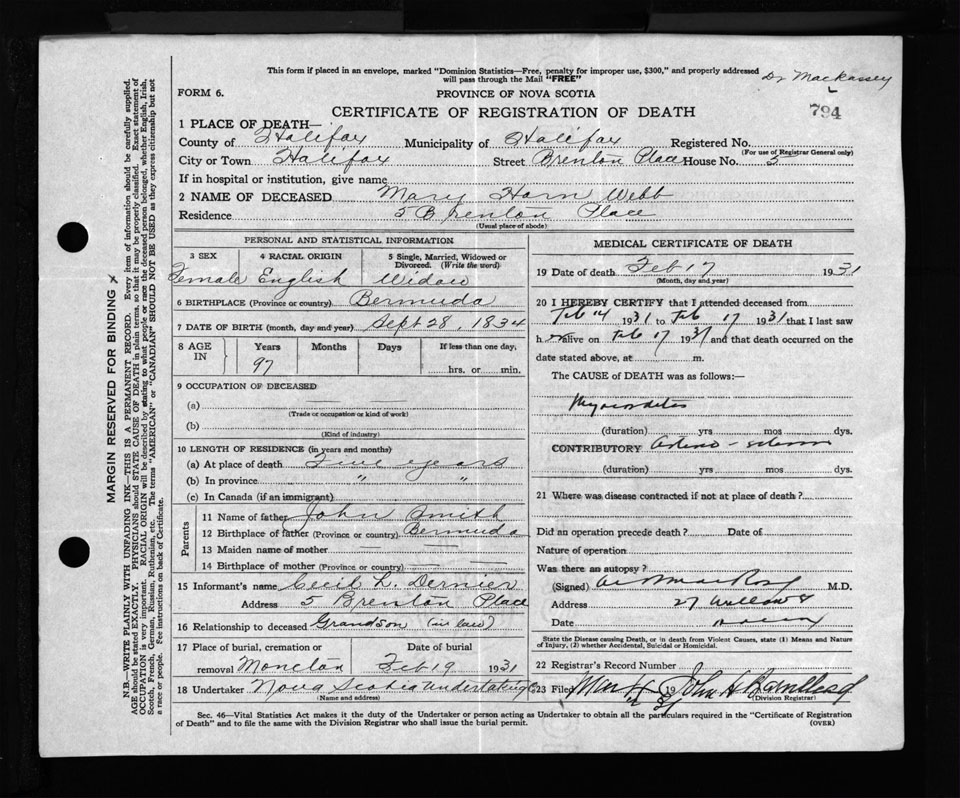 This form if placed in an envelope, marked "Dominion Statistics—Free, penalty for improper use, $300," and properly addressed
will pass through the Mail "FREE"
Dr Mackassey
FORM 6.
PROVINCE OF NOVA SCOTIA
794
CERTIFICATE OF REGISTRATION OF DEATH
1 PLACE OF DEATH—
County of Halifax Municipality of Halifax Registered No.
(For use of Registrar General only)
City or Town Halifax Street Brenton Place House No. 5
If in hospital or institution, give name
2 NAME OF DECEASED Mary Horn Webb
Residence 5 Brenton Place
(Usual place of abode)
PERSONAL AND STATISTICAL INFORMATION
3 SEX 4 RACIAL ORIGIN 5 Single, Married, Widowed or Divorced. (Write the word)
Female English Widow
6 BIRTHPLACE (Province or country) Bermuda
7 DATE OF BIRTH (month, day and year) Sept 28, 1834
8 AGE IN Years Months Days If less than one day,
97 hrs. or min.
9 OCCUPATION OF DECEASED
(a)
(Trade or occupation or kind of work)
(b)
(Kind of industry)
10 LENGTH OF RESIDENCE (in years and months)
(a) At place of death Five years
(b) In province " "
(c) In Canada (if an immigrant)
Parents
11 Name of father John Smith
12 Birthplace of father (Province or country) Bermuda
13 Maiden name of mother —
14 Birthplace of mother (Province or country) —
15 Informant's name Cecil L. Dernier
Address 5 Brenton Place
16 Relationship to deceased Grandson (in law)
17 Place of burial, cremation or Date of burial
removal Moncton Feb 19 1931
18 Undertaker Nova Scotia Undertaking
MEDICAL CERTIFICATE OF DEATH
19 Date of death Feb 17 1931
(Month, day and year)
20 I HEREBY CERTIFY that I attended deceased from
Feb 14 1931 to Feb 17 1931 that I last saw
h er alive on Feb 17 1931 and that death occurred on the
date stated above, at m.
The CAUSE of DEATH was as follows:—
Myocarditis
(duration) yrs mos dys.
CONTRIBUTORY
(duration) yrs mos dys.
21 Where was disease contracted if not at place of death?
Did an operation precede death? Date of
Nature of operation
Was there an autopsy?
(Signed) M.D.
Address 27
Date
State the Disease causing Death, or in death from Violent Causes, state (1) Means and Nature
of Injury, (2) whether Accidental, Suicidal or Homicidal.
22 Registrar's Record Number
23 Filed Mar 4 1931 John H
(Division Registrar)
Sec. 46—Vital Statistics Act makes it the duty of the Undertaker or person acting as Undertaker to obtain all the particulars required in the "Certificate of Registration
of Death" and to file the same with the Division Registrar who shall issue the burial permit.
(OVER)
MARGIN RESERVED FOR BINDING
N.B.—WRITE PLAINLY WITH UNFADING INK—THIS IS A PERMANENT RECORD. Every item of information should be carefully supplied.
AGE should be stated EXACTLY. PHYSICIANS should STATE CAUSE OF DEATH in plain terms, so that it may be properly classified. Exact statement of
OCCUPATION is very important. RACIAL ORIGIN will be described by stating to what people or race the deceased person belonged, whether English, Irish,
Scotch, French, German, Russian, Ruthenian, etc. The terms "AMERICAN" or "CANADIAN" SHOULD NOT BE USED as they express citizenship but not
a race or people. See instructions on back of Certificate.